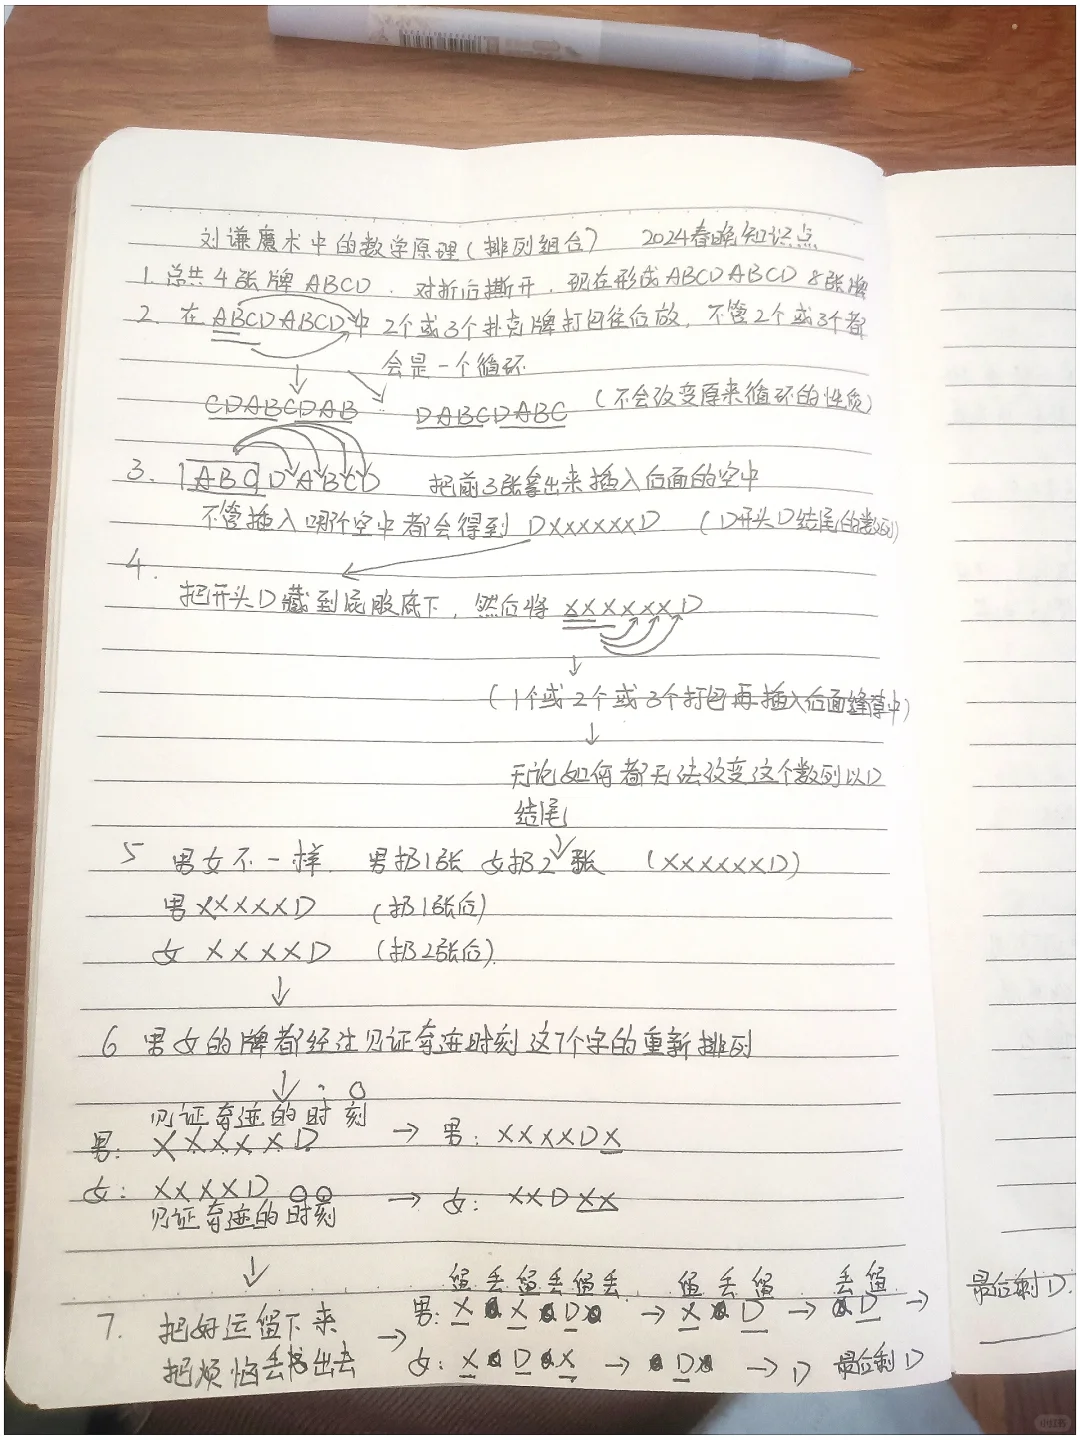 刘谦魔术中的数学原理(排列组合) 2024春晚知识点
1. 总共4张牌 ABCD. 对折后撕开. 现在形成ABCDABCD 8张牌
2. 在ABCDABCD中 2个或3个扑克牌打包往后放, 不管2个或3个都
会是一个循环
CDABCDAB DABCDABC (不会改变原来循环的性质)
3. ABCDABCD 把前3张拿出来插入后面的空中
不管插入哪个空中都会得到 DXXXXXXD (D开头D结尾的数列)
4.
把开头D藏到屁股底下, 然后将 XXXXXXD
(1个或2个或3个打包再插入后面缝隙中)
无论如何都无法改变这个数列以D
结尾
5 男女不一样. 男扔1张 女扔2张 (XXXXXXD)
男 XXXXXD (扔1张后)
女 XXXXD (扔2张后).
6 男女的牌都经过见证奇迹时刻这7个字的重新排列
见证奇迹的时刻
男: XXXXXD → 男: XXXXDX
女: XXXXD → 女: XXDXX
见证奇迹的时刻
留丢留丢留丢 留丢留 丢留
7. 把好运留下来 → 男: X X D → X D → D → 最后剩D.
把烦恼丢出去 女: X D X → D → D 最后剩D
小红书